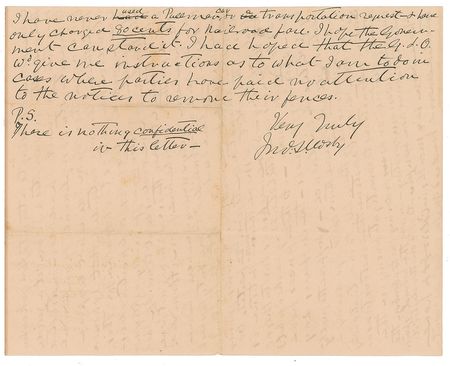 I have never used a Pullman car or transportation request & have
only charged 80 cents for Railroad fare. I hope the Govern-
ment can stand it. I had hoped that the G.L.O.
wd. give me instructions as to what I am to do in
cases where parties have paid no attention
to the notices to remove their fences.
P.S.
There is nothing confidential
in this letter—
Very Truly
Jno. S. Mosby